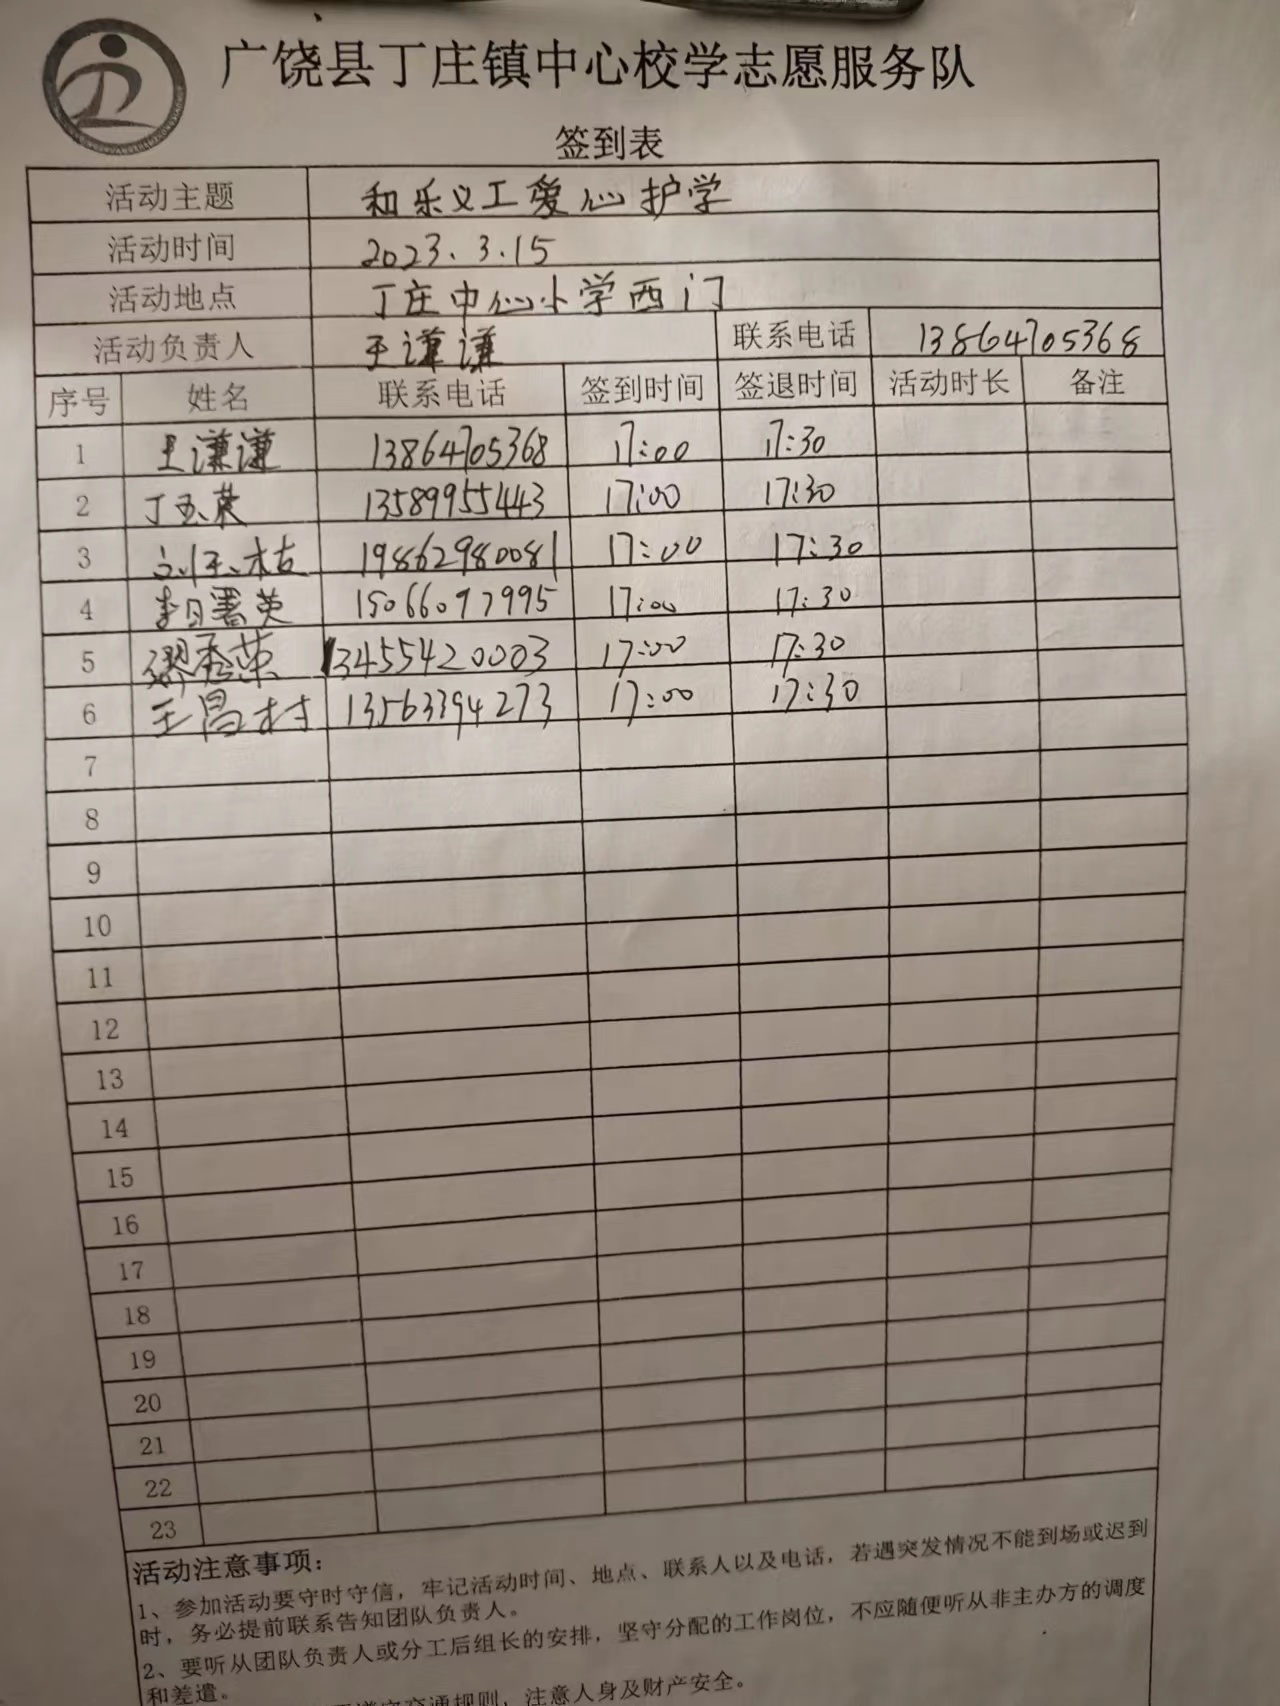 广饶县丁庄镇中心校学志愿服务队
签到表
活动主题 和乐义工爱心护学
活动时间 2023.3.15
活动地点 丁庄中心小学西门
活动负责人 王谦谦 联系电话 13864705368
序号 姓名 联系电话 签到时间 签退时间 活动时长 备注
1 王谦谦 13864705368 17:00 17:30
2 丁玉荣 13589955443 17:00 17:30
3 19862980081 17:00 17:30
4 15066097995 17:00 17:30
5 13455420003 17:00 17:30
6 王昌村 13563394273 17:00 17:30
7
8
9
10
11
12
13
14
15
16
17
18
19
20
21
22
23
活动注意事项：
1、参加活动要守时守信，牢记活动时间、地点、联系人以及电话，若遇突发情况不能到场或迟到
时，务必提前联系告知团队负责人。
2、要听从团队负责人或分工后组长的安排，坚守分配的工作岗位，不应随便听从非主办方的调度
和差遣。
交通规则，注意人身及财产安全。